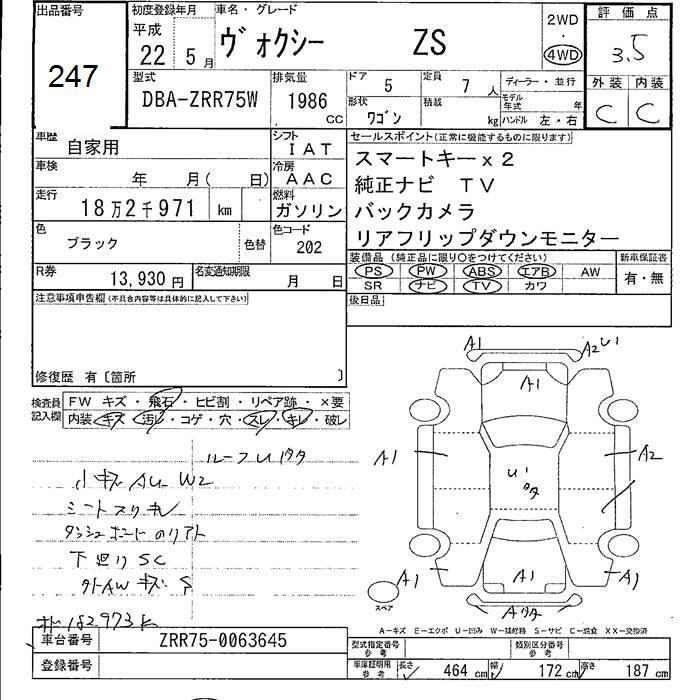 出品番号
247
初度登録年月
平成
22 5月
車名・グレード
ヴォクシー ZS
2WD
・
4WD
評価点
3.5
外装 内装
C C
型式
DBA-ZRR75W
排気量
1986
CC
ドア 5
定員 7 人
ディーラー・並行
形状
ワゴン
積載
kg
モデル年式 年
ハンドル 左・右
車歴
自家用
シフト
IAT
車検
年 月( 日)
冷房
AAC
走行
18万2千971 km
燃料
ガソリン
色
ブラック
色替
色コード
202
R券
13,930 円
名変通知期限
月 日
セールスポイント(正常に機能するものに限ります)
スマートキーx2
純正ナビ TV
バックカメラ
リアフリップダウンモニター
装備品 (純正品に限り○をつけてください)
PS PW ABS エアB AW
SR ナビ TV カワ
新車保証書
有・無
後日品
注意事項申告欄(不具合内容等は具体的に記入して下さい)
修復歴 有〔箇所 〕
検査員記入欄
FW キズ・飛石・ヒビ割・リペア跡・×要
内装・キズ・汚レ・コゲ・穴・スレ・キレ・破レ
ルーフU
小キズ AU W2
シートスリキレ
下廻りSC
AW キズ
182.973K
A1
A2 U1
A1
A1
A2
U1
A1
A1
A1
A
スペア
A-キズ E-エクボ U-凹み W-補修跡 S-サビ C-腐食 XX-交換済
車台番号
ZRR75-0063645
登録番号
型式指定番号
参考
類別区分番号
参考
車庫証明用
参考
長さ 464 cm 幅 172 cm 高さ 187 cm